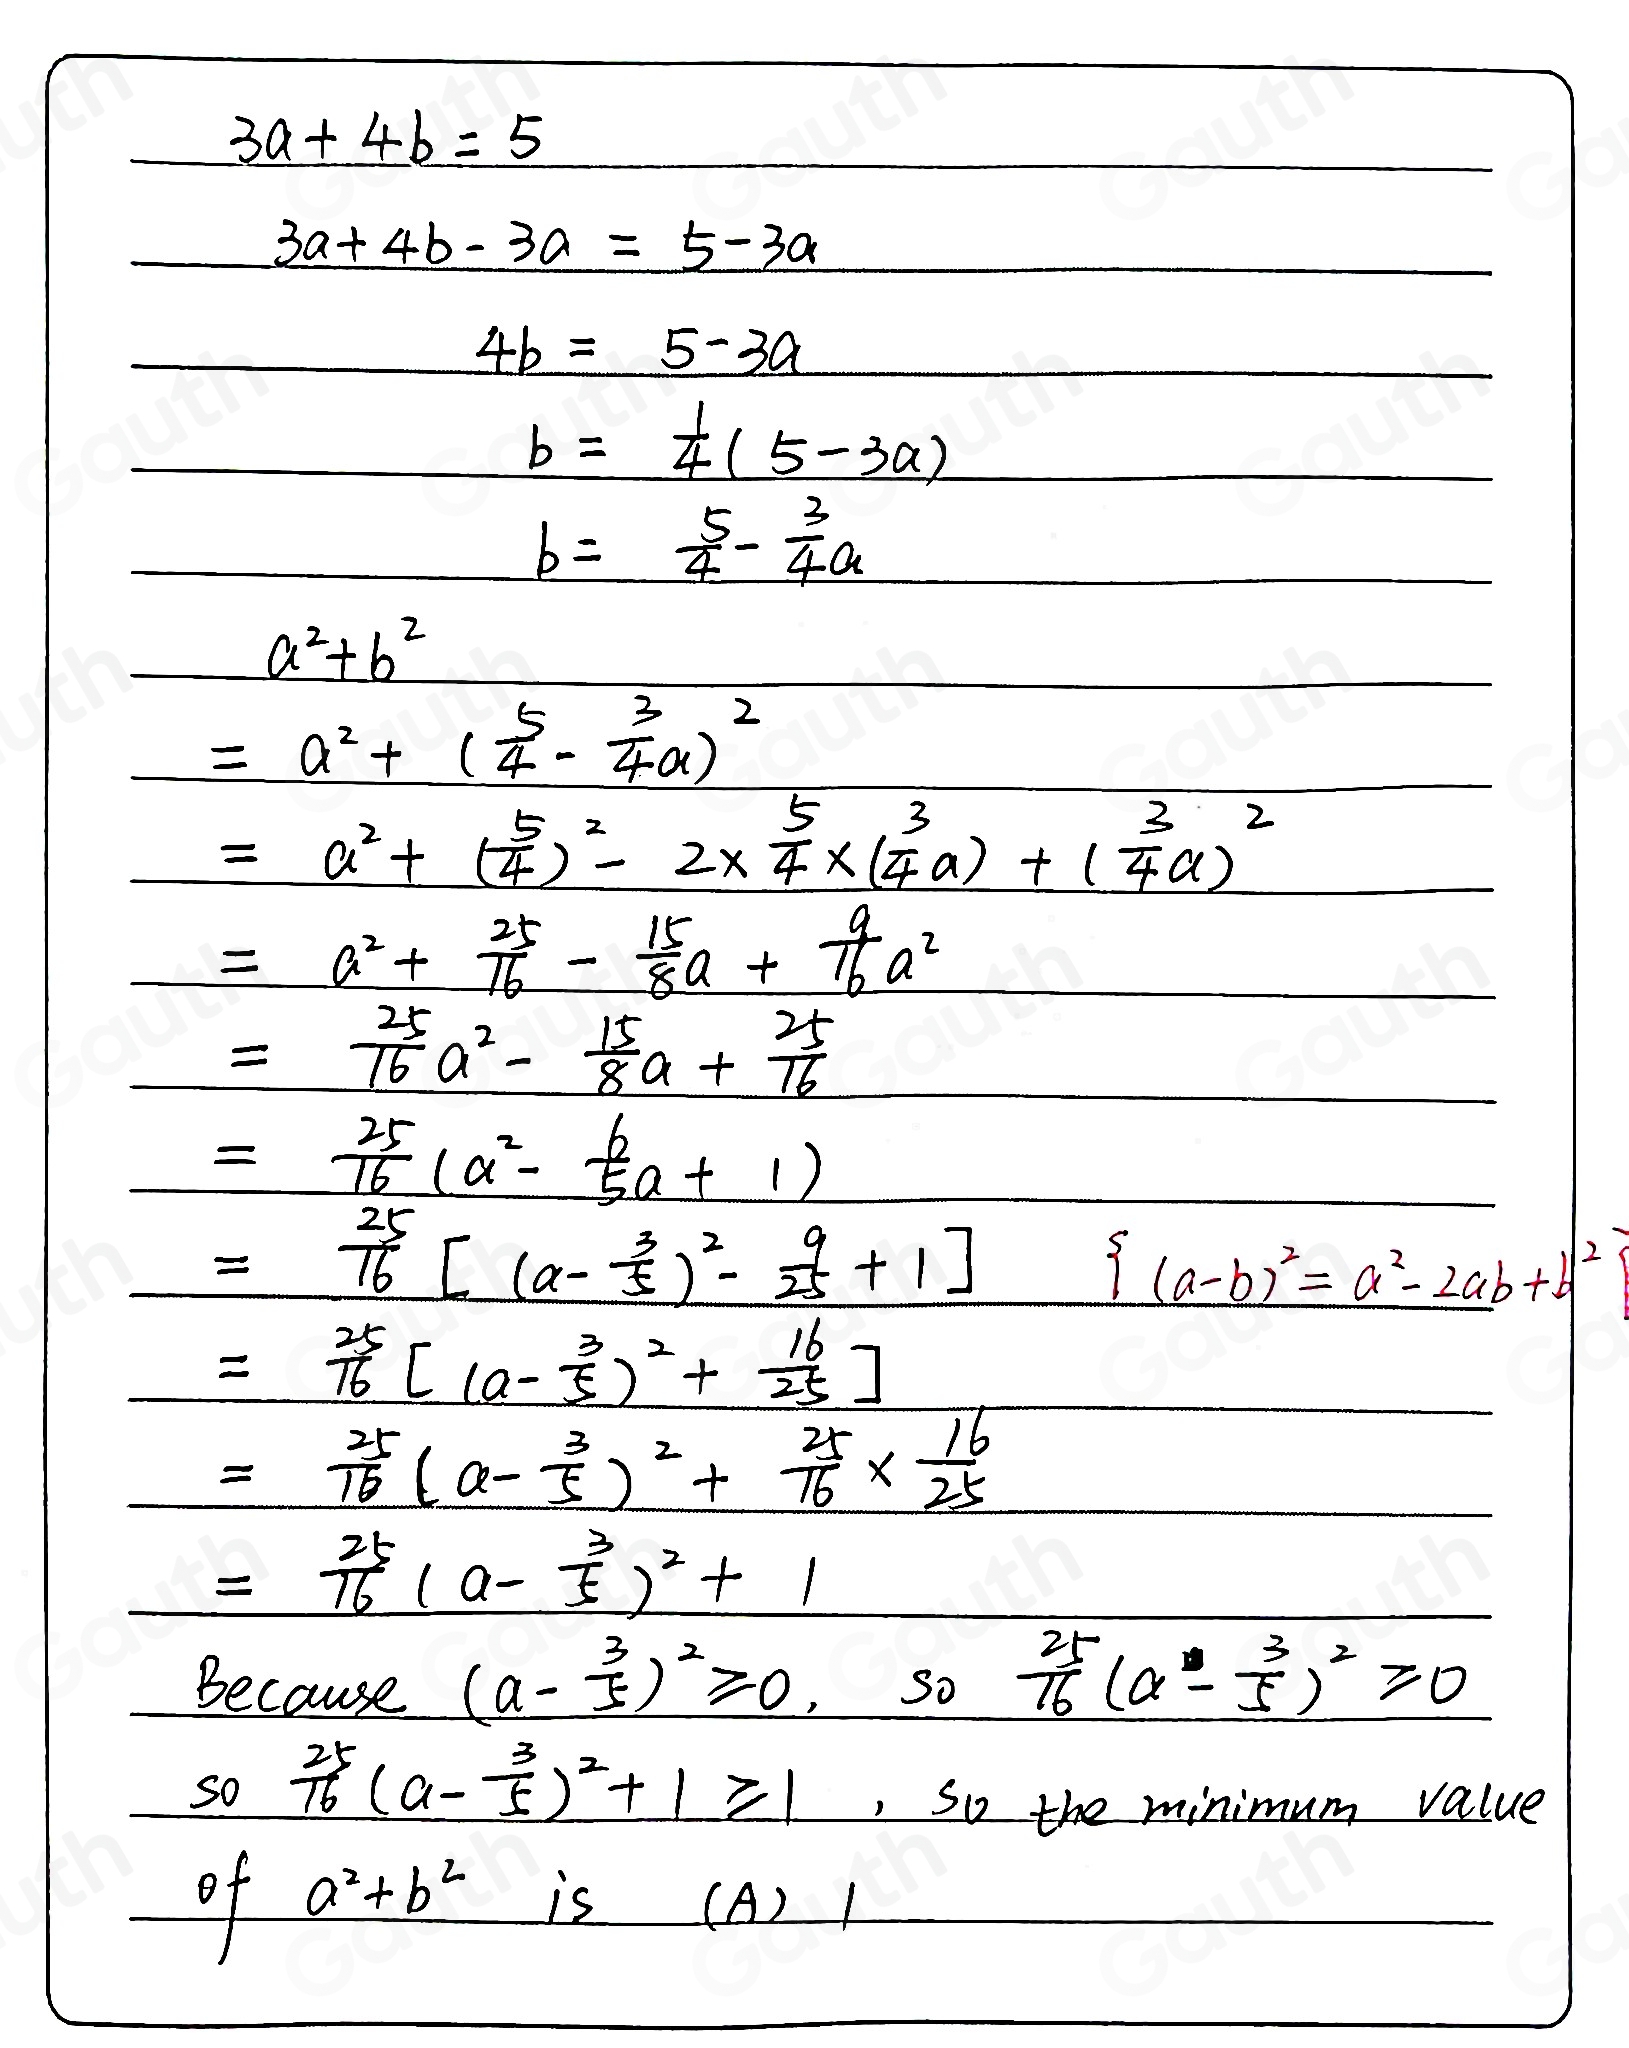 3a + 4b = 5
3a + 4b - 3a = 5 - 3a
4b = 5 - 3a
b = 1/4 (5 - 3a)
b = 5/4 - 3/4 a
a² + b²
= a² + (5/4 - 3/4 a)²
= a² + (5/4)² - 2 × 5/4 × (3/4 a) + (3/4 a)²
= a² + 25/16 - 15/8 a + 9/16 a²
= 25/16 a² - 15/8 a + 25/16
= 25/16 (a² - 6/5 a + 1)
= 25/16 [(a - 3/5)² - 9/25 + 1] {(a-b)² = a² - 2ab + b²}
= 25/16 [(a - 3/5)² + 16/25]
= 25/16 (a - 3/5)² + 25/16 × 16/25
= 25/16 (a - 3/5)² + 1
Because (a - 3/5)² ≥ 0, so 25/16 (a - 3/5)² ≥ 0
so 25/16 (a - 3/5)² + 1 ≥ 1, so the minimum value
of a² + b² is (A) 1
Gauth